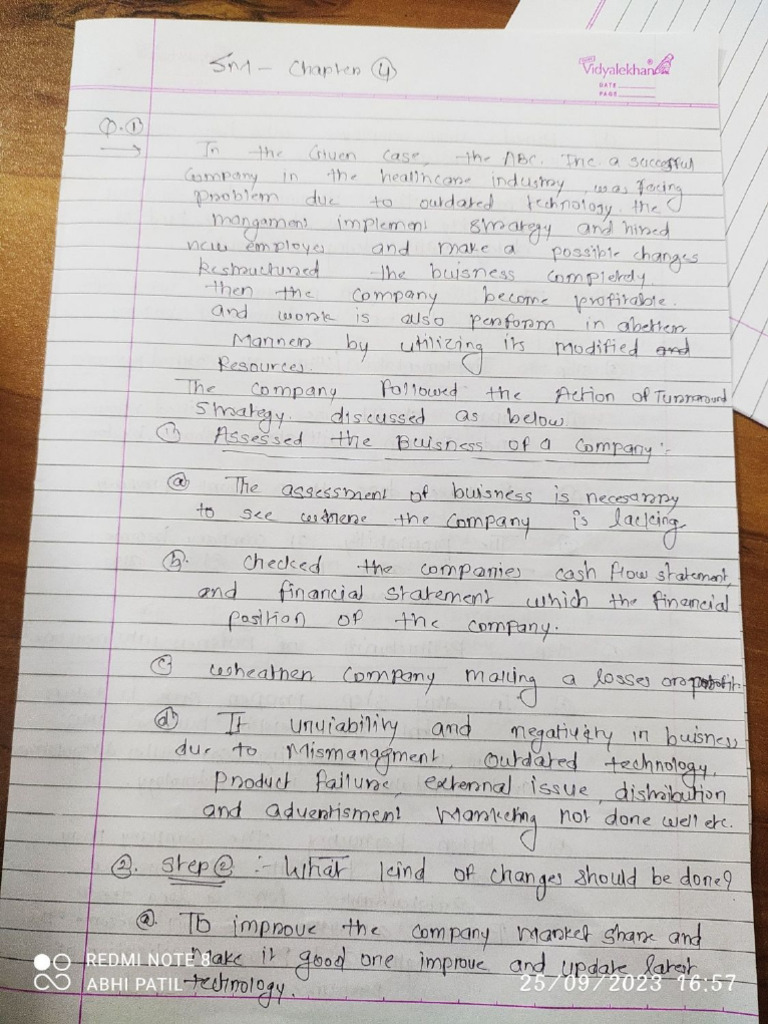 SM - Chapter ④
Vidyalekhan
DATE
PAGE
Q.①
→ In the Given case, the ABC. Inc. a successful
company in the healthcare industry, was facing
problem due to outdated technology. the
mangament implement strategy and hired
new employes and make a possible changes
Restructured the buisness completely.
then the company become profitable.
and work is also perform in a better
Manner by utilizing its modified and
Resources.
The company followed the Action of Turnaround
Strategy. discussed as below
① Assessed the Buisness of a company :-
ⓐ The assessment of buisness is necesarry
to see where the company is lacking
ⓑ. checked the companies cash flow statement,
and financial statement which the financial
position of the company.
ⓒ wheather company making a losses or profit.
ⓓ If unviability and negativity in buisness
due to Mismanagment, outdated technology,
product failure, external issue, distribution
and advertisment Marketing not done well etc.
②. Step② :- What kind of changes should be done?
ⓐ. To improve the company market share and
make it good one improve and update latest
technology.
REDMI NOTE 8
ABHI PATIL
25/09/2023 16:57